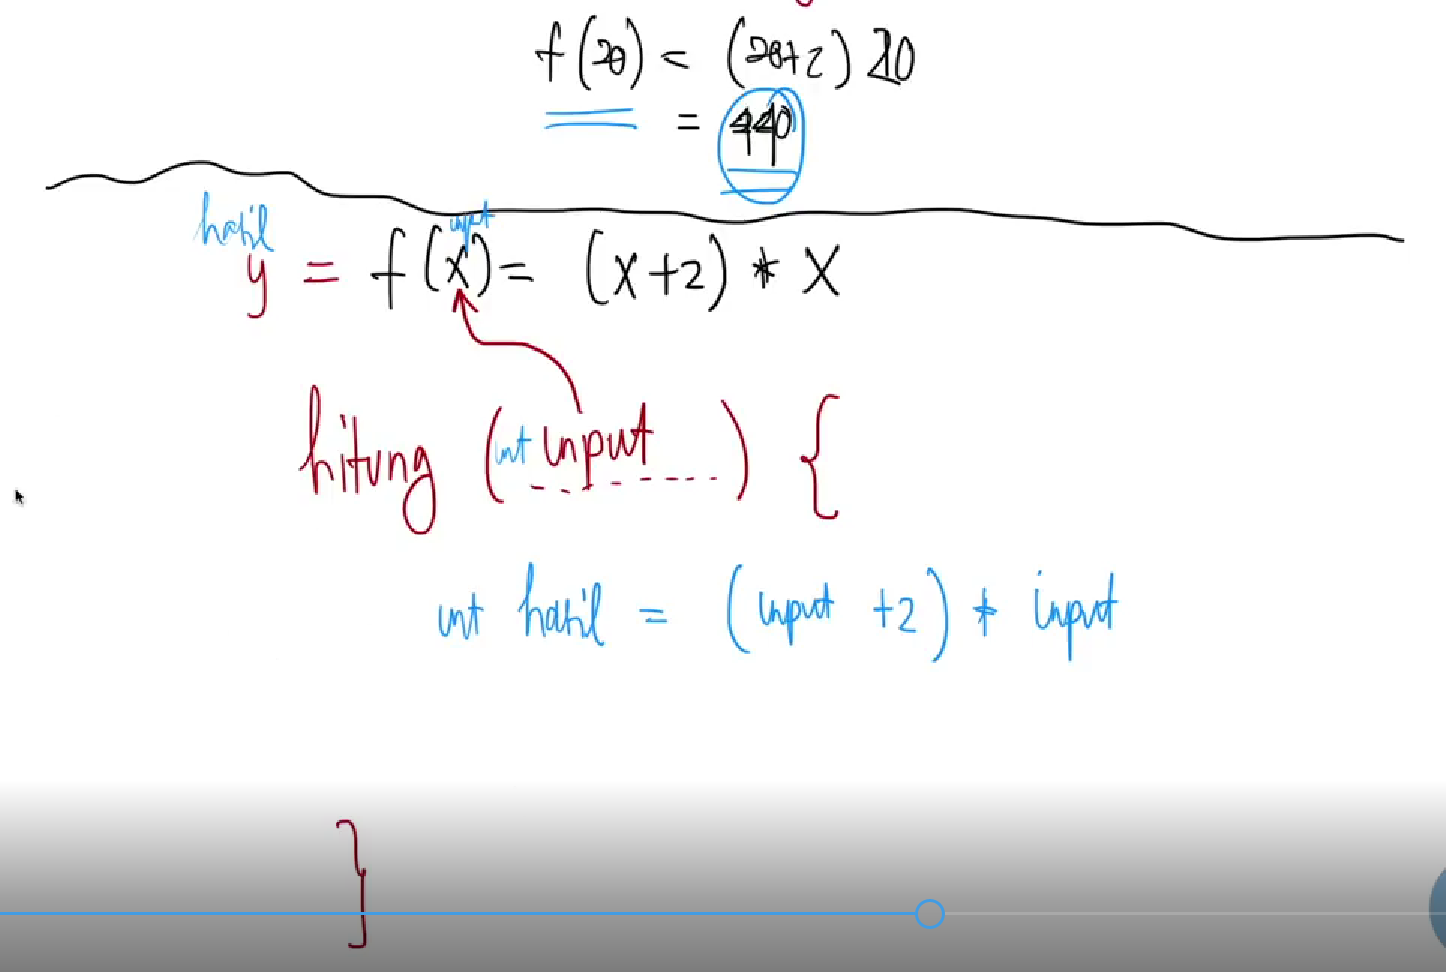 f(20) = (20+2) 20
= 440
hasil
input
y = f(x) = (x+2) * x
hitung (int input) {
int hasil = (input +2) * input
}